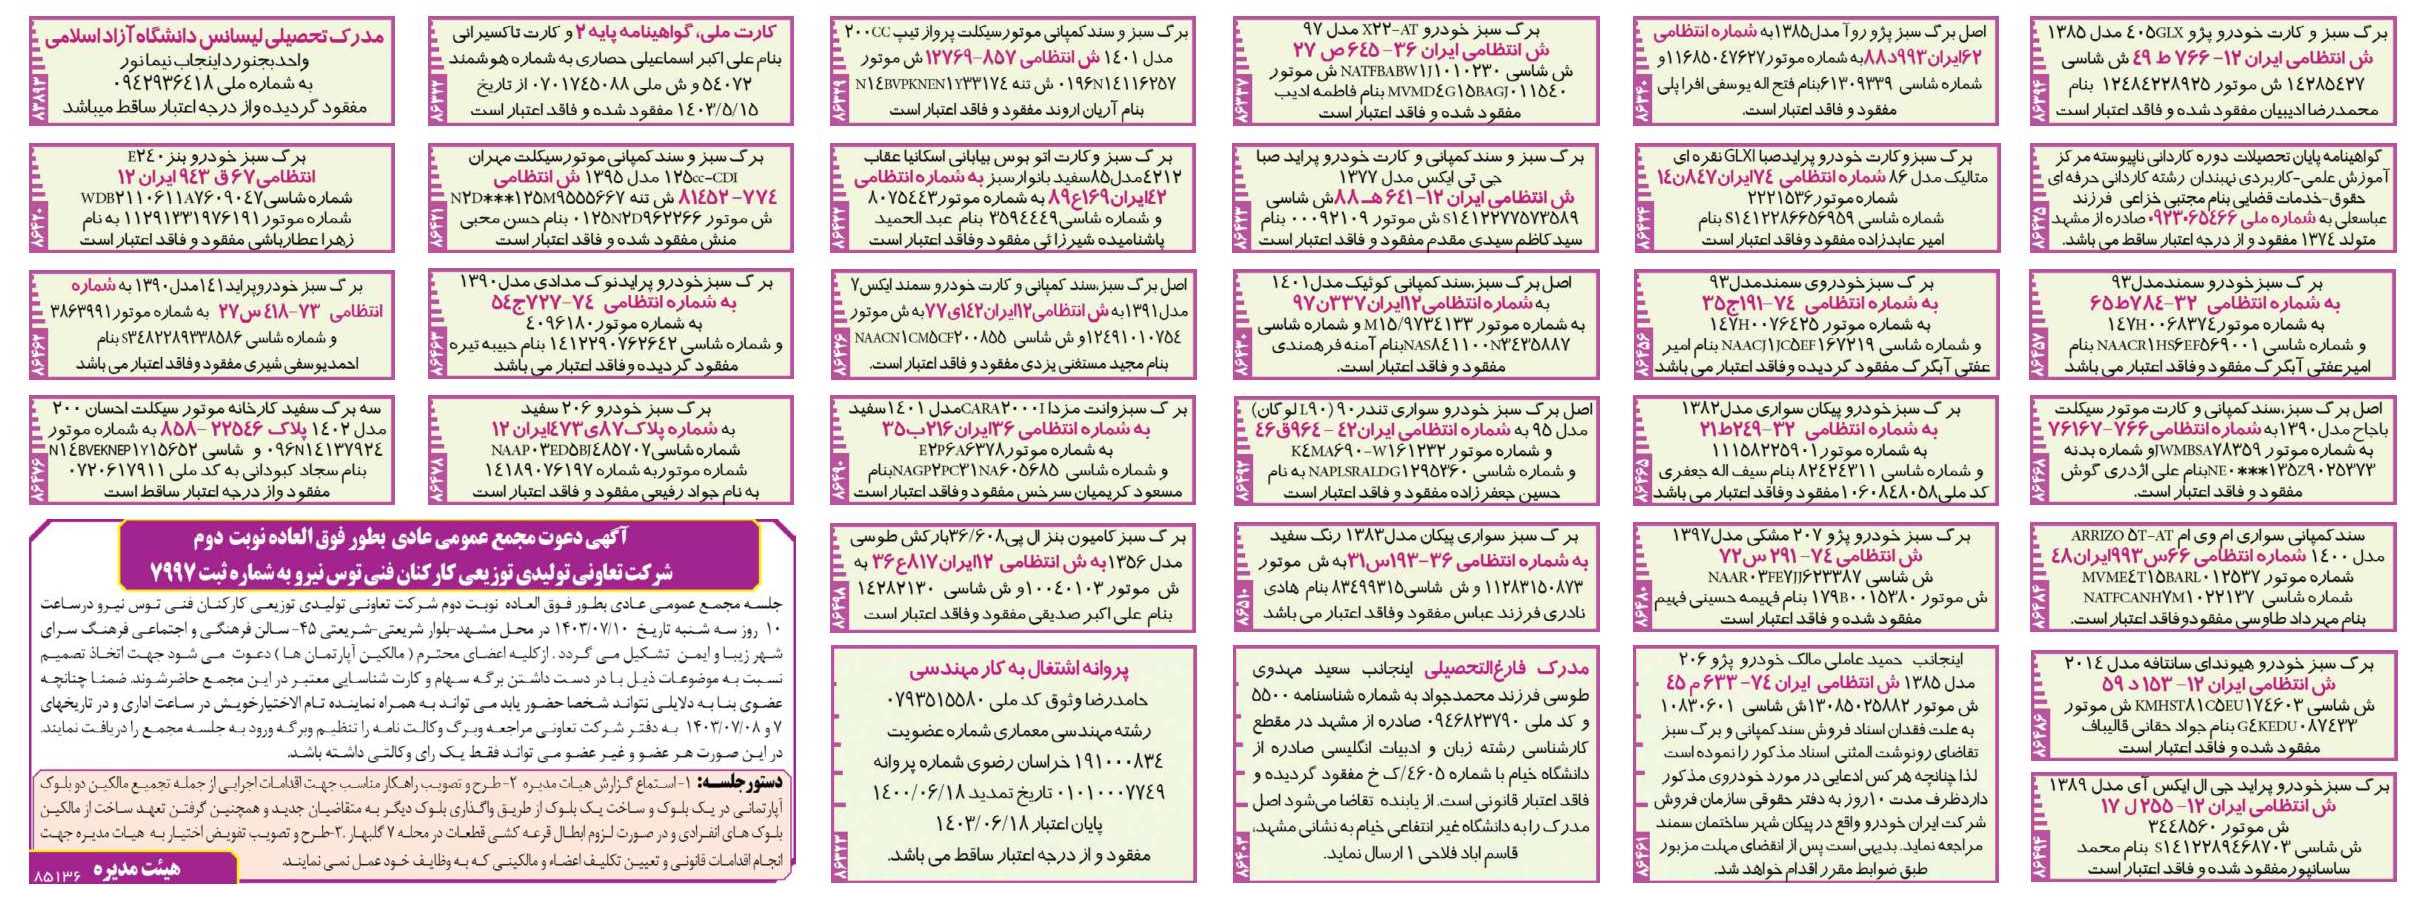 برگ سبز و کارت خودرو پژو ۴۰۵GLX مدل ۱۳۸۵
ش انتظامی ایران ۱۲- ۷۶۶ ط ۴۹ ش شاسی
۱۴۲۸۵۴۲۷ ش موتور ۱۲۴۸۴۲۲۸۹۲۵ بنام
محمدرضا ادیبیان مفقود شده و فاقد اعتبار است
۸۶۳۹۴
اصل برگ سبز پژو روآ مدل۱۳۸۵به شماره انتظامی
۶۲ایران۹۹۳د۸۸به شماره موتور۱۱۶۸۵۰۴۷۶۲۷و
شماره شاسی ۶۱۳۰۹۳۳۹بنام فتح اله یوسفی افرا پلی
مفقود و فاقد اعتبار است.
۸۶۳۴۰
برگ سبز خودرو X۲۲-AT مدل ۹۷
ش انتظامی ایران ۳۶- ۶۴۵ ص ۲۷
ش شاسی NATFBABW۱J۱۰۱۰۲۳۰ ش موتور
MVMD۴G۱۵BAGJ۰۱۱۵۴۰ بنام فاطمه ادیب
مفقود شده و فاقد اعتبار است
۸۶۳۳۷
برگ سبز و سند کمپانی موتورسیکلت پرواز تیپ ۲۰۰CC
مدل ۱۴۰۱ ش انتظامی ۸۵۷-۱۲۷۶۹ ش موتور
۰۱۹۶N۱۴۱۱۶۲۵۷ ش تنه N۱۴BVPKNEN۱Y۳۳۱۷۴
بنام آریان اروند مفقود و فاقد اعتبار است
۸۶۳۲۹
کارت ملی، گواهینامه پایه ۲ و کارت تاکسیرانی
بنام علی اکبر اسماعیلی حصاری به شماره هوشمند
۵۴۰۷۲ و ش ملی ۰۷۰۱۷۴۵۰۸۸ از تاریخ
۱۴۰۳/۵/۱۵ مفقود شده و فاقد اعتبار است
۸۶۳۲۲
مدرک تحصیلی لیسانس دانشگاه آزاد اسلامی
واحدبجنورداینجاب نیما نور
به شماره ملی ۰۹۴۲۹۳۶۴۱۸
مفقود گردیده واز درجه اعتبار ساقط میباشد
۸۳۸۹۳
گواهینامه پایان تحصیلات دوره کاردانی ناپیوسته مرکز
آموزش علمی-کاربردی نهبندان رشته کاردانی حرفه ای
حقوق-خدمات قضایی بنام مجتبی خزاعی فرزند
عباسعلی به شماره ملی ۰۹۲۳۰۶۵۴۶۶صادره از مشهد
متولد ۱۳۷۴ مفقود و از درجه اعتبار ساقط می باشد.
۸۶۴۲۵
برگ سبزوکارت خودرو پرایدصبا GLXI نقره ای
متالیک مدل ۸۶ شماره انتظامی ۷۴ایران۸۴۷ن۱۴
شماره موتور ۲۲۲۱۵۳۶
شماره شاسی S۱۴۱۲۲۸۶۶۵۶۹۵۹ بنام
امیر عابدزاده مفقود و فاقد اعتبار است
۸۶۴۲۴
برگ سبز و سند کمپانی و کارت خودرو پراید صبا
جی تی ایکس مدل ۱۳۷۷
ش انتظامی ایران ۱۲-۶۴۱ هـ ۸۸ ش شاسی
S۱۴۱۲۲۷۷۵۷۳۵۸۹ ش موتور ۰۰۰۹۲۱۰۹ بنام
سیدکاظم سیدی مقدم مفقود و فاقد اعتبار است
۸۶۴۲۳
بر گ سبز وکارت اتو بوس بیابانی اسکانیا عقاب
۴۲۱۲مدل۸۵سفید بانوارسبز به شماره انتظامی
۴۲ایران۱۶۹ع۸۹ به شماره موتور۸۰۷۵۴۴۳
و شماره شاسی۳۵۹۴۴۴۹ بنام عبد الحمید
پاشنامیده شیرزائی مفقود وفاقد اعتبار است
۸۶۴۲۲
برگ سبز و سند کمپانی موتورسیکلت مهران
۱۲۵cc-CDI مدل ۱۳۹۵ ش انتظامی
۷۷۴- ۸۱۴۵۲ ش تنه N۲D***۱۲۵M۹۵۵۵۶۶۷
ش موتور ۰۱۲۵N۲D۹۶۲۲۶۶ بنام حسن محبی
منش مفقود شده و فاقد اعتبار است
۸۶۴۲۱
برگ سبز خودرو بنز E۲۴۰
انتظامی۶۷ ق ۹۴۳ ایران ۱۲
شماره شاسی WDB۲۱۱۰۶۱۱A۷۶۰۹۰۴۷
شماره موتور ۱۱۲۹۱۳۳۱۹۷۶۱۹۱ به نام
زهرا عطارباشی مفقود و فاقد اعتبار است
۸۶۴۲۰
بر گ سبزخودرو سمندمدل۹۳
به شماره انتظامی ۳۲-۷۸۴ط۶۵
به شماره موتور۱۴۷H۰۰۶۸۳۷۴
و شماره شاسی NAACR۱HS۶EF۵۶۹۰۰۱ بنام
امیرعفتی آبگرگ مفقود وفاقد اعتبار می باشد
۸۶۴۵۷
بر گ سبزخودروی سمندمدل۹۳
به شماره انتظامی ۷۴-۱۹۱ج۳۵
به شماره موتور ۱۴۷H۰۰۷۶۴۲۵
و شماره شاسی NAACJ۱JC۵EF۱۶۷۲۱۹ بنام امیر
عفتی آبگرگ مفقود گردیده وفاقد اعتبار می باشد
۸۶۴۵۶
اصل برگ سبز،سند کمپانی کوئیک مدل۱۴۰۱
به شماره انتظامی۱۲ایران۳۳۷ن۹۷
به شماره موتور M۱۵/۹۷۳۴۱۳۳ و شماره شاسی
NAS۸۴۱۱۰۰N۳۴۳۵۸۸۷بنام آمنه فرهمندی
مفقود و فاقد اعتبار است.
۸۶۴۳۰
اصل برگ سبز،سند کمپانی و کارت خودرو سمند ایکس۷
مدل۱۳۹۱به ش انتظامی۱۲ایران۱۴۲ی۷۷به ش موتور
۱۲۴۹۱۰۱۰۷۵۴و ش شاسی NAACN۱CM۵CF۲۰۰۸۵۵
بنام مجید مستغنی یزدی مفقود و فاقد اعتبار است.
۸۶۴۲۶
بر گ سبزخودرو پرایدنوک مدادی مدل۱۳۹۰
به شماره انتظامی ۷۴-۷۲۷ج۵۴
به شماره موتور۴۰۹۶۱۸۰
و شماره شاسی ۱۴۱۲۲۹۰۷۶۲۶۴۲ بنام حبیبه تیره
مفقود گردیده وفاقد اعتبار می باشد
۸۶۴۶۳
بر گ سبز خودروپراید۱۴۱مدل۱۳۹۰ به شماره
انتظامی ۷۳-۴۱۸س۲۷ به شماره موتور۳۸۶۳۹۹۱
و شماره شاسی S۳۴۸۲۲۸۹۳۳۸۵۸۶بنام
احمدیوسفی شیری مفقود وفاقد اعتبار می باشد
۸۶۴۶۲
اصل برگ سبز،سند کمپانی و کارت موتور سیکلت
باجاج مدل۱۳۹۰به شماره انتظامی۷۶۶-۷۶۱۶۷
به شماره موتور JWMBSA۷۸۳۵۹و شماره بدنه
NE۰***۱۳۵Z۹۰۲۵۳۷۳بنام علی اژدری گوش
مفقود و فاقد اعتبار است.
۸۶۴۶۸
بر گ سبزخودرو پیکان سواری مدل۱۳۸۲
به شماره انتظامی ۳۲-۲۴۹ط۲۱
به شماره موتور ۱۱۱۵۸۲۲۵۹۰۱
و شماره شاسی ۸۲۴۲۴۳۱۱ بنام سیف اله جعفری
کد ملی۱۰۶۰۸۴۸۰۵۸مفقود وفاقد اعتبار می باشد
۸۶۴۶۵
اصل برگ سبز خودرو سواری تندر۹۰ (L۹۰ لوگان)
مدل ۹۵ به شماره انتظامی ایران۴۲ - ۹۶۴ق۴۶
و شماره موتور K۴MA۶۹۰-W۱۶۱۲۳۲
و شماره شاسی NAPLSRALDG۱۲۹۵۳۶۰ به نام
حسین جعفر زاده مفقود و فاقد اعتبار است
۸۶۴۹۲
بر گ سبزوانت مزدا CARA۲۰۰۰Iمدل ۱۴۰۱سفید
به شماره انتظامی ۳۶ایران۲۱۶ب۳۵
به شماره موتور E۲P۶A۶۳۷۸
و شماره شاسی NAGP۲PC۳۱NA۶۰۵۶۸۵بنام
مسعود کریمیان سرخس مفقود وفاقد اعتبار است
۸۶۴۹۰
برگ سبز خودرو ۲۰۶ سفید
به شماره پلاک۸۷ی۴۷۳ایران ۱۲
شماره شاسی NAAP۰۳ED۵BJ۴۸۵۷۰۷
شماره موتوربه شماره ۱۴۱۸۹۰۷۶۱۹۷
به نام جواد رفیعی مفقود و فاقد اعتبار است
۸۶۴۷۸
سه برگ سفید کارخانه موتور سیکلت احسان ۲۰۰
مدل ۱۴۰۲ پلاک ۲۲۵۴۶ -۸۵۸ به شماره موتور
۰۹۶N۱۴۱۳۷۹۲۴ و شاسی N۱۴BVEKNEP۱Y۱۵۶۵۲
بنام سجاد کبودانی به کد ملی ۰۷۲۰۶۱۷۹۱۱
مفقود واز درجه اعتبار ساقط است
۸۶۴۷۶
سند کمپانی سواری ام وی ام ARRIZO ۵T-AT
مدل ۱۴۰۰ شماره انتظامی ۶۶س۹۹۳ایران۴۸
شماره موتور MVME۴T۱۵BARL۰۱۲۵۳۷
شماره شاسی NATFCANH۷M۱۰۲۲۱۳۷
بنام مهرداد طاوسی مفقودوفاقد اعتبار است.
۸۶۴۸۴
برگ سبز خودرو پژو ۲۰۷ مشکی مدل۱۳۹۷
ش انتظامی ۷۴- ۲۹۱ س ۷۲
ش شاسی NAAR۰۳FE۷JJ۶۲۳۳۸۷
ش موتور ۱۷۹B۰۰۱۵۳۸۰ بنام فهیمه حسینی فهیم
مفقود شده و فاقد اعتبار است
۸۶۴۸۰
بر گ سبز سواری پیکان مدل۱۳۸۳ رنگ سفید
به شماره انتظامی ۳۶-۱۹۳س۳۱به ش موتور
۱۱۲۸۳۱۵۰۸۷۳ و ش شاسی۸۳۴۹۹۳۱۵بنام هادی
نادری فرزند عباس مفقود وفاقد اعتبار می باشد
۸۶۵۱۰
بر گ سبز کامیون بنز ال پی۳۶/۶۰۸بارکش طوسی
مدل ۱۳۵۶به ش انتظامی ۱۲ایران۸۱۷ع۳۶ به
ش موتور ۱۰۰۴۰۱۰۳و ش شاسی ۱۴۲۸۲۱۳۰
بنام علی اکبر صدیقی مفقود و فاقد اعتبار است
۸۶۴۹۸
آگهی دعوت مجمع عمومی عادی بطور فوق العاده نوبت دوم
شرکت تعاونی تولیدی توزیعی کارکنان فنی توس نیرو به شماره ثبت ۷۹۹۷
جلسه مجمع عمومی عادی بطور فوق العاده نوبت دوم شرکت تعاونی تولیدی توزیعی کارکنان فنی توس نیرو درساعت
۱۰ روز سه شنبه تاریخ ۱۴۰۳/۰۷/۱۰ در محل مشهد-بلوار شریعتی-شریعتی ۴۵- سالن فرهنگی و اجتماعی فرهنگ سرای
شهر زیبا و ایمن تشکیل می گردد . ازکلیه اعضای محترم ( مالکین آپارتمان ها ) دعوت می شود جهت اتخاذ تصمیم
نسبت به موضوعات ذیل با در دست داشتن برگه سهام و کارت شناسایی معتبر در این مجمع حاضرشوند. ضمنا چنانچه
عضوی بنا به دلایلی نتواند شخصا حضور یابد می تواند به همراه نماینده تام الاختیارخویش در ساعت اداری و در تاریخهای
۷ و ۱۴۰۳/۰۷/۰۸ به دفتر شرکت تعاونی مراجعه وبرگ وکالت نامه را تنظیم وبرگه ورود به جلسه مجمع را دریافت نمایند.
در این صورت هر عضو و غیر عضو می تواند فقط یک رای وکالتی داشته باشد.
دستورجلسه: ۱-استماع گزارش هیات مدیره ۲-طرح و تصویب راهکار مناسب جهت اقدامات اجرایی از جمله تجمیع مالکین دو بلوک
آپارتمانی در یک بلوک و ساخت یک بلوک از طریق واگذاری بلوک دیگر به متقاضیان جدید و همچنین گرفتن تعهد ساخت از مالکین
بلوک های انفرادی و در صورت لزوم ابطال قرعه کشی قطعات در محله ۷ گلبهار .۲-طرح و تصویب تفویض اختیار به هیات مدیره جهت
انجام اقدامات قانونی و تعیین تکلیف اعضاء و مالکینی که به وظایف خود عمل نمی نمایند.
هیئت مدیره
۸۵۱۳۶
برگ سبز خودرو هیوندای سانتافه مدل ۲۰۱۴
ش انتظامی ایران ۱۲- ۱۵۳ د ۵۹
ش شاسی KMHST۸۱C۵EU۱۷۴۶۰۳ ش موتور
G۴KEDU۰۸۷۴۳۳ بنام جواد حقانی قالیباف
مفقود شده و فاقد اعتبار است
۸۶۴۸۶
برگ سبزخودرو پراید جی ال ایکس آی مدل ۱۳۸۹
ش انتظامی ایران ۱۲- ۲۵۵ ل ۱۷
ش موتور ۳۴۴۸۵۶۰
ش شاسی S۱۴۱۲۲۸۹۴۶۸۷۰۳ بنام محمد
ساسانپورمفقود شده و فاقد اعتبار است
۸۶۴۹۴
اینجانب حمید عاملی مالک خودرو پژو ۲۰۶
مدل ۱۳۸۵ ش انتظامی ایران ۷۴- ۶۳۳ م ۴۵
ش موتور ۱۳۰۸۵۰۲۵۸۸۲ش شاسی ۱۰۸۳۰۶۰۱
به علت فقدان اسناد فروش سندکمپانی و برگ سبز
تقاضای رونوشت المثنی اسناد مذکور را نموده است
لذا چنانچه هرکس ادعایی در مورد خودروی مذکور
داردظرف مدت ۱۰روز به دفتر حقوقی سازمان فروش
شرکت ایران خودرو واقع در پیکان شهر ساختمان سمند
مراجعه نماید. بدیهی است پس از انقضای مهلت مزبور
طبق ضوابط مقرر اقدام خواهد شد.
۸۶۴۶۱
مدرک فارغ‌التحصیلی اینجانب سعید مهدوی
طوسی فرزند محمدجواد به شماره شناسنامه ۵۵۰۰
و کد ملی ۰۹۴۶۸۲۳۷۹۰ صادره از مشهد در مقطع
کارشناسی رشته زبان و ادبیات انگلیسی صادره از
دانشگاه خیام با شماره ۴۶۰۵/ک خ مفقود گردیده و
فاقد اعتبار قانونی است. از یابنده تقاضا می‌شود اصل
مدرک را به دانشگاه غیر انتفاعی خیام به نشانی مشهد،
قاسم اباد فلاحی ۱ ارسال نماید.
۸۶۴۰۳
پروانه اشتغال به کار مهندسی
حامدرضا وثوق کد ملی ۰۷۹۳۵۱۵۵۸۰
رشته مهندسی معماری شماره عضویت
۱۹۱۰۰۰۸۳۴ خراسان رضوی شماره پروانه
۰۱۰۱۰۰۰۷۷۴۹ تاریخ تمدید ۱۴۰۰/۰۶/۱۸
پایان اعتبار ۱۴۰۳/۰۶/۱۸
مفقود و از درجه اعتبار ساقط می باشد.
۸۶۳۲۳